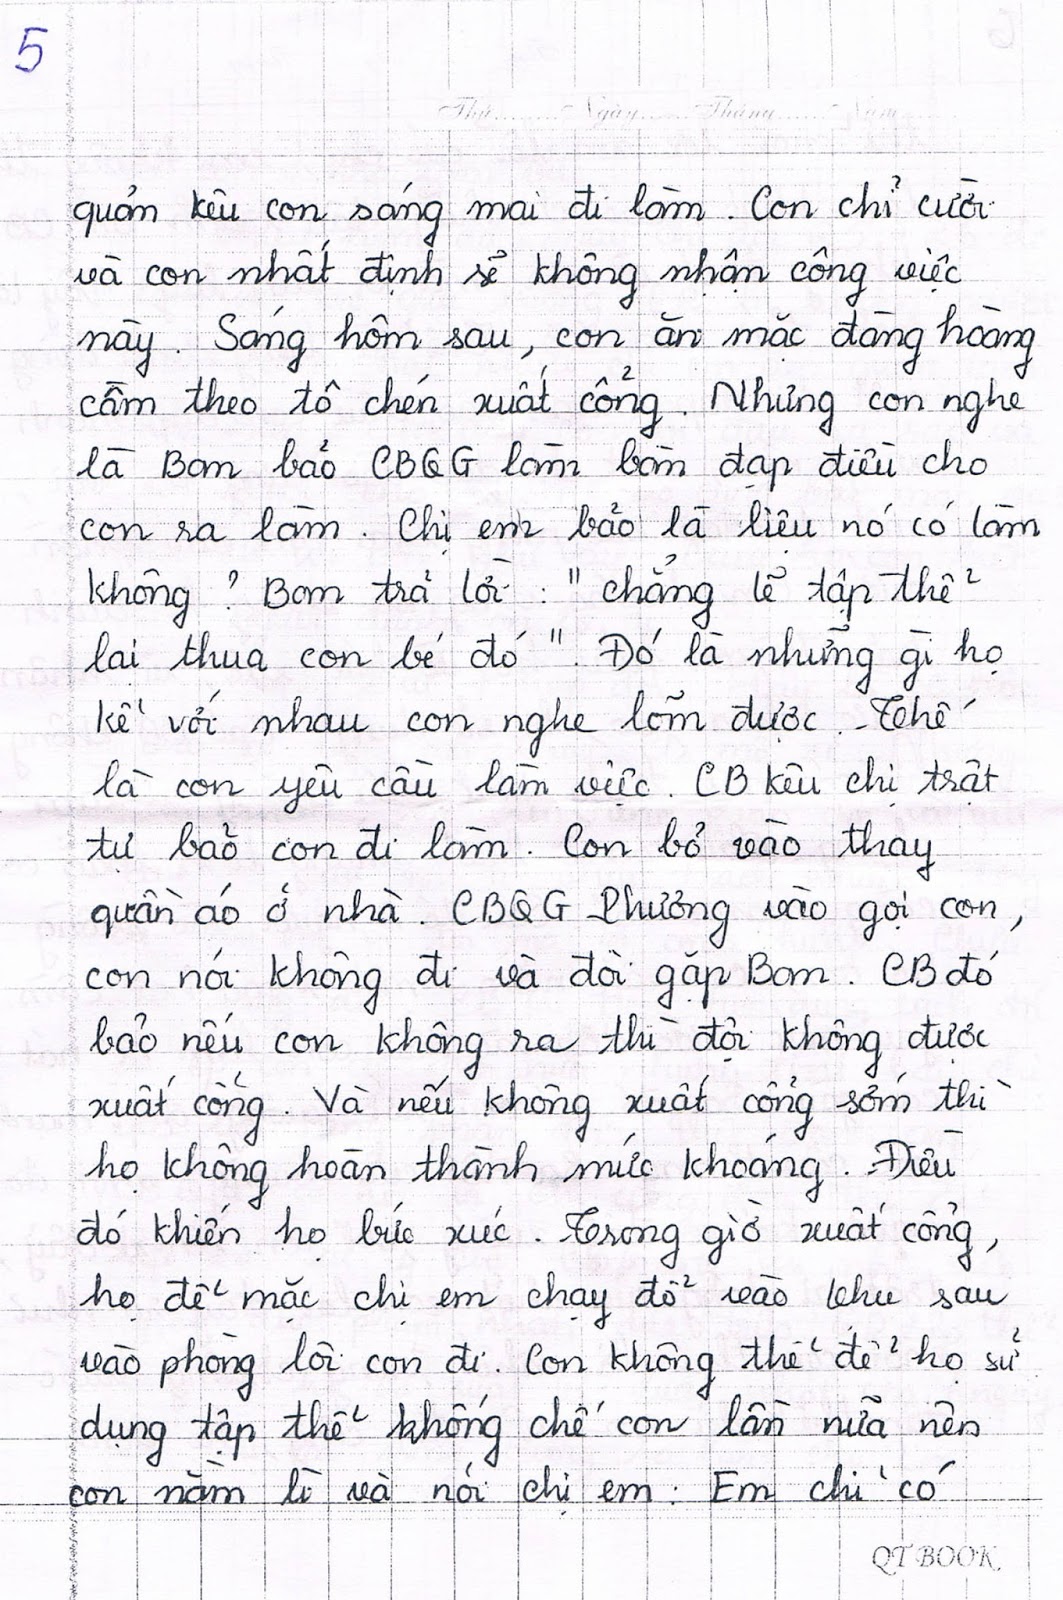 5
Thứ......... Ngày...... Tháng...... Năm......
quản kêu con sáng mai đi làm. Con chỉ cười
và con nhất định sẽ không nhận công việc
này. Sáng hôm sau, con ăn mặc đàng hoàng
cầm theo tô chén xuất cổng. Nhưng con nghe
là Bom bảo CBQG làm bàn đạp điều cho
con ra làm. Chị em bảo là liệu nó có làm
không? Bom trả lời: "chẳng lẽ tập thể
lại thua con bé đó". Đó là những gì họ
kể với nhau con nghe lõm được. Thế
là con yêu cầu làm việc. CB kêu chị trật
tự bảo con đi làm. Con bỏ vào thay
quần áo ở nhà. CBQG Phương vào gọi con,
con nói không đi và đòi gặp Bom. CB đó
bảo nếu con không ra thì đội không được
xuất cổng. Và nếu không xuất cổng sớm thì
họ không hoàn thành mức khoáng. Điều
đó khiến họ bức xúc. Trong giờ xuất cổng,
họ để mặc chị em chạy đổ vào khu sau
vào phòng lôi con đi. Con không thể để họ sử
dụng tập thể khống chế con lần nữa nên
con nằm lì và nói chị em: Em chỉ có
QT BOOK